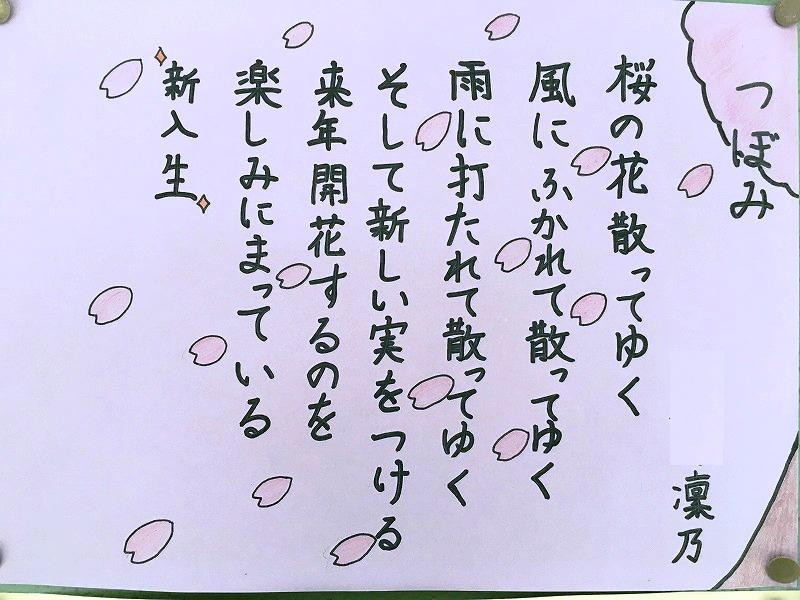 つぼみ
凜乃
桜の花散ってゆく
風にふかれて散ってゆく
雨に打たれて散ってゆく
そして新しい実をつける
来年開花するのを
楽しみにまっている
新入生